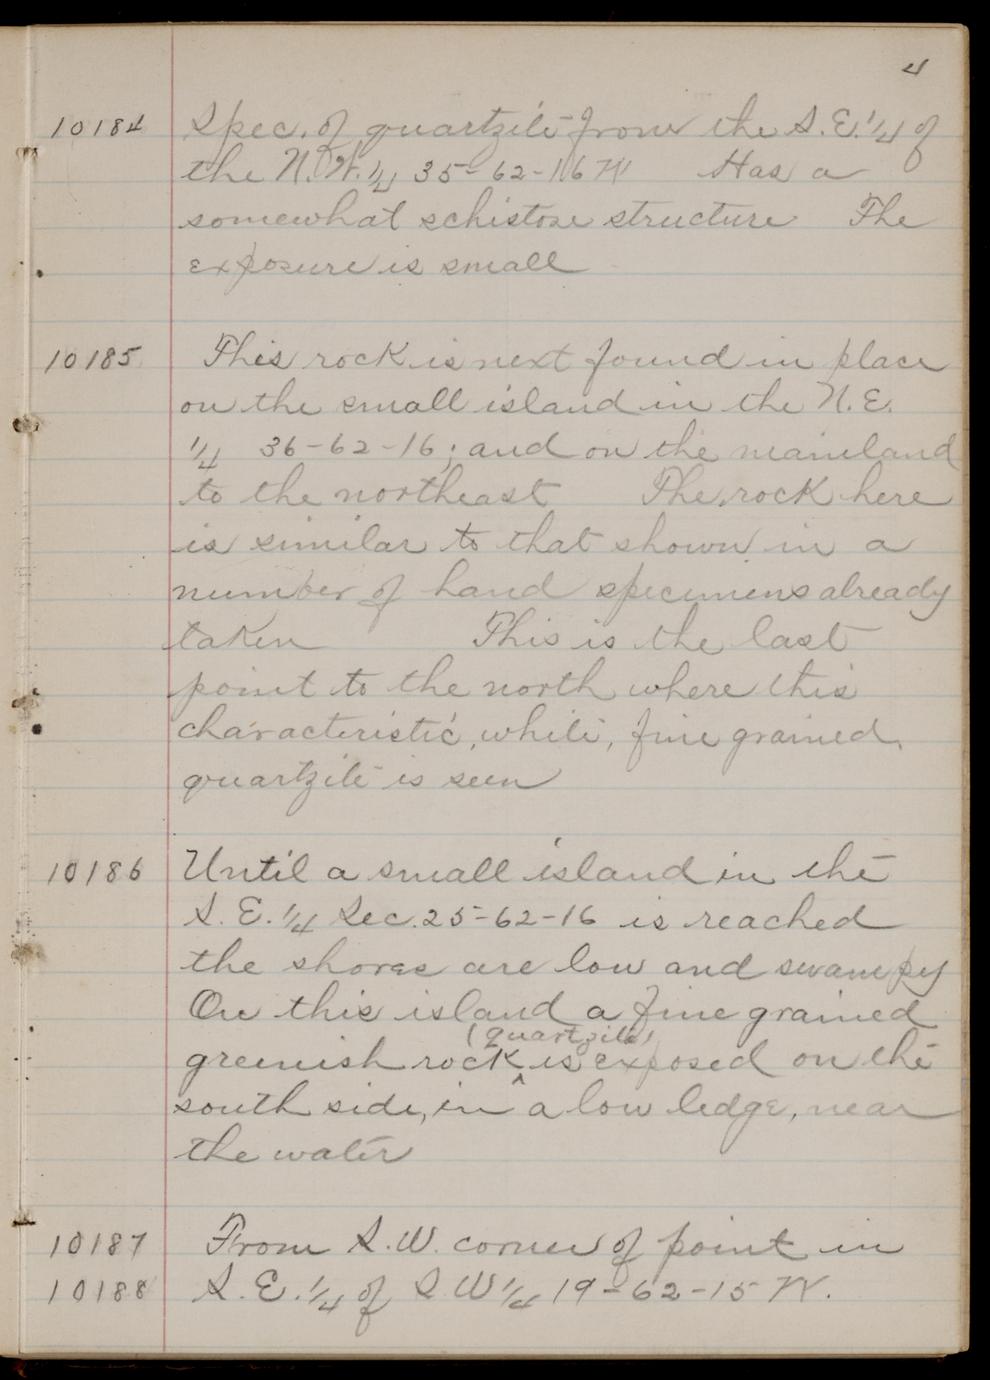 4
10184 Spec. of quartzite from the S.E. 1/4 of
the N.W. 1/4 35-62-16 W Has a
somewhat schistose structure The
exposure is small
10185 This rock is next found in place
on the small island in the N.E.
1/4 36-62-16; and on the mainland
to the northeast The rock here
is similar to that shown in a
number of hand specimens already
taken This is the last
point to the north where this
characteristic, white, fine grained,
quartzite is seen
10186 Until a small island in the
S.E. 1/4 Sec. 25-62-16 is reached
the shores are low and swampy
On this island a fine grained
(quartzite)
greenish rock ^ is exposed on the
south side, in a low ledge, near
the water
10187 From S.W. corner of point in
10188 S.E. 1/4 of S W 1/4 19-62-15 W.